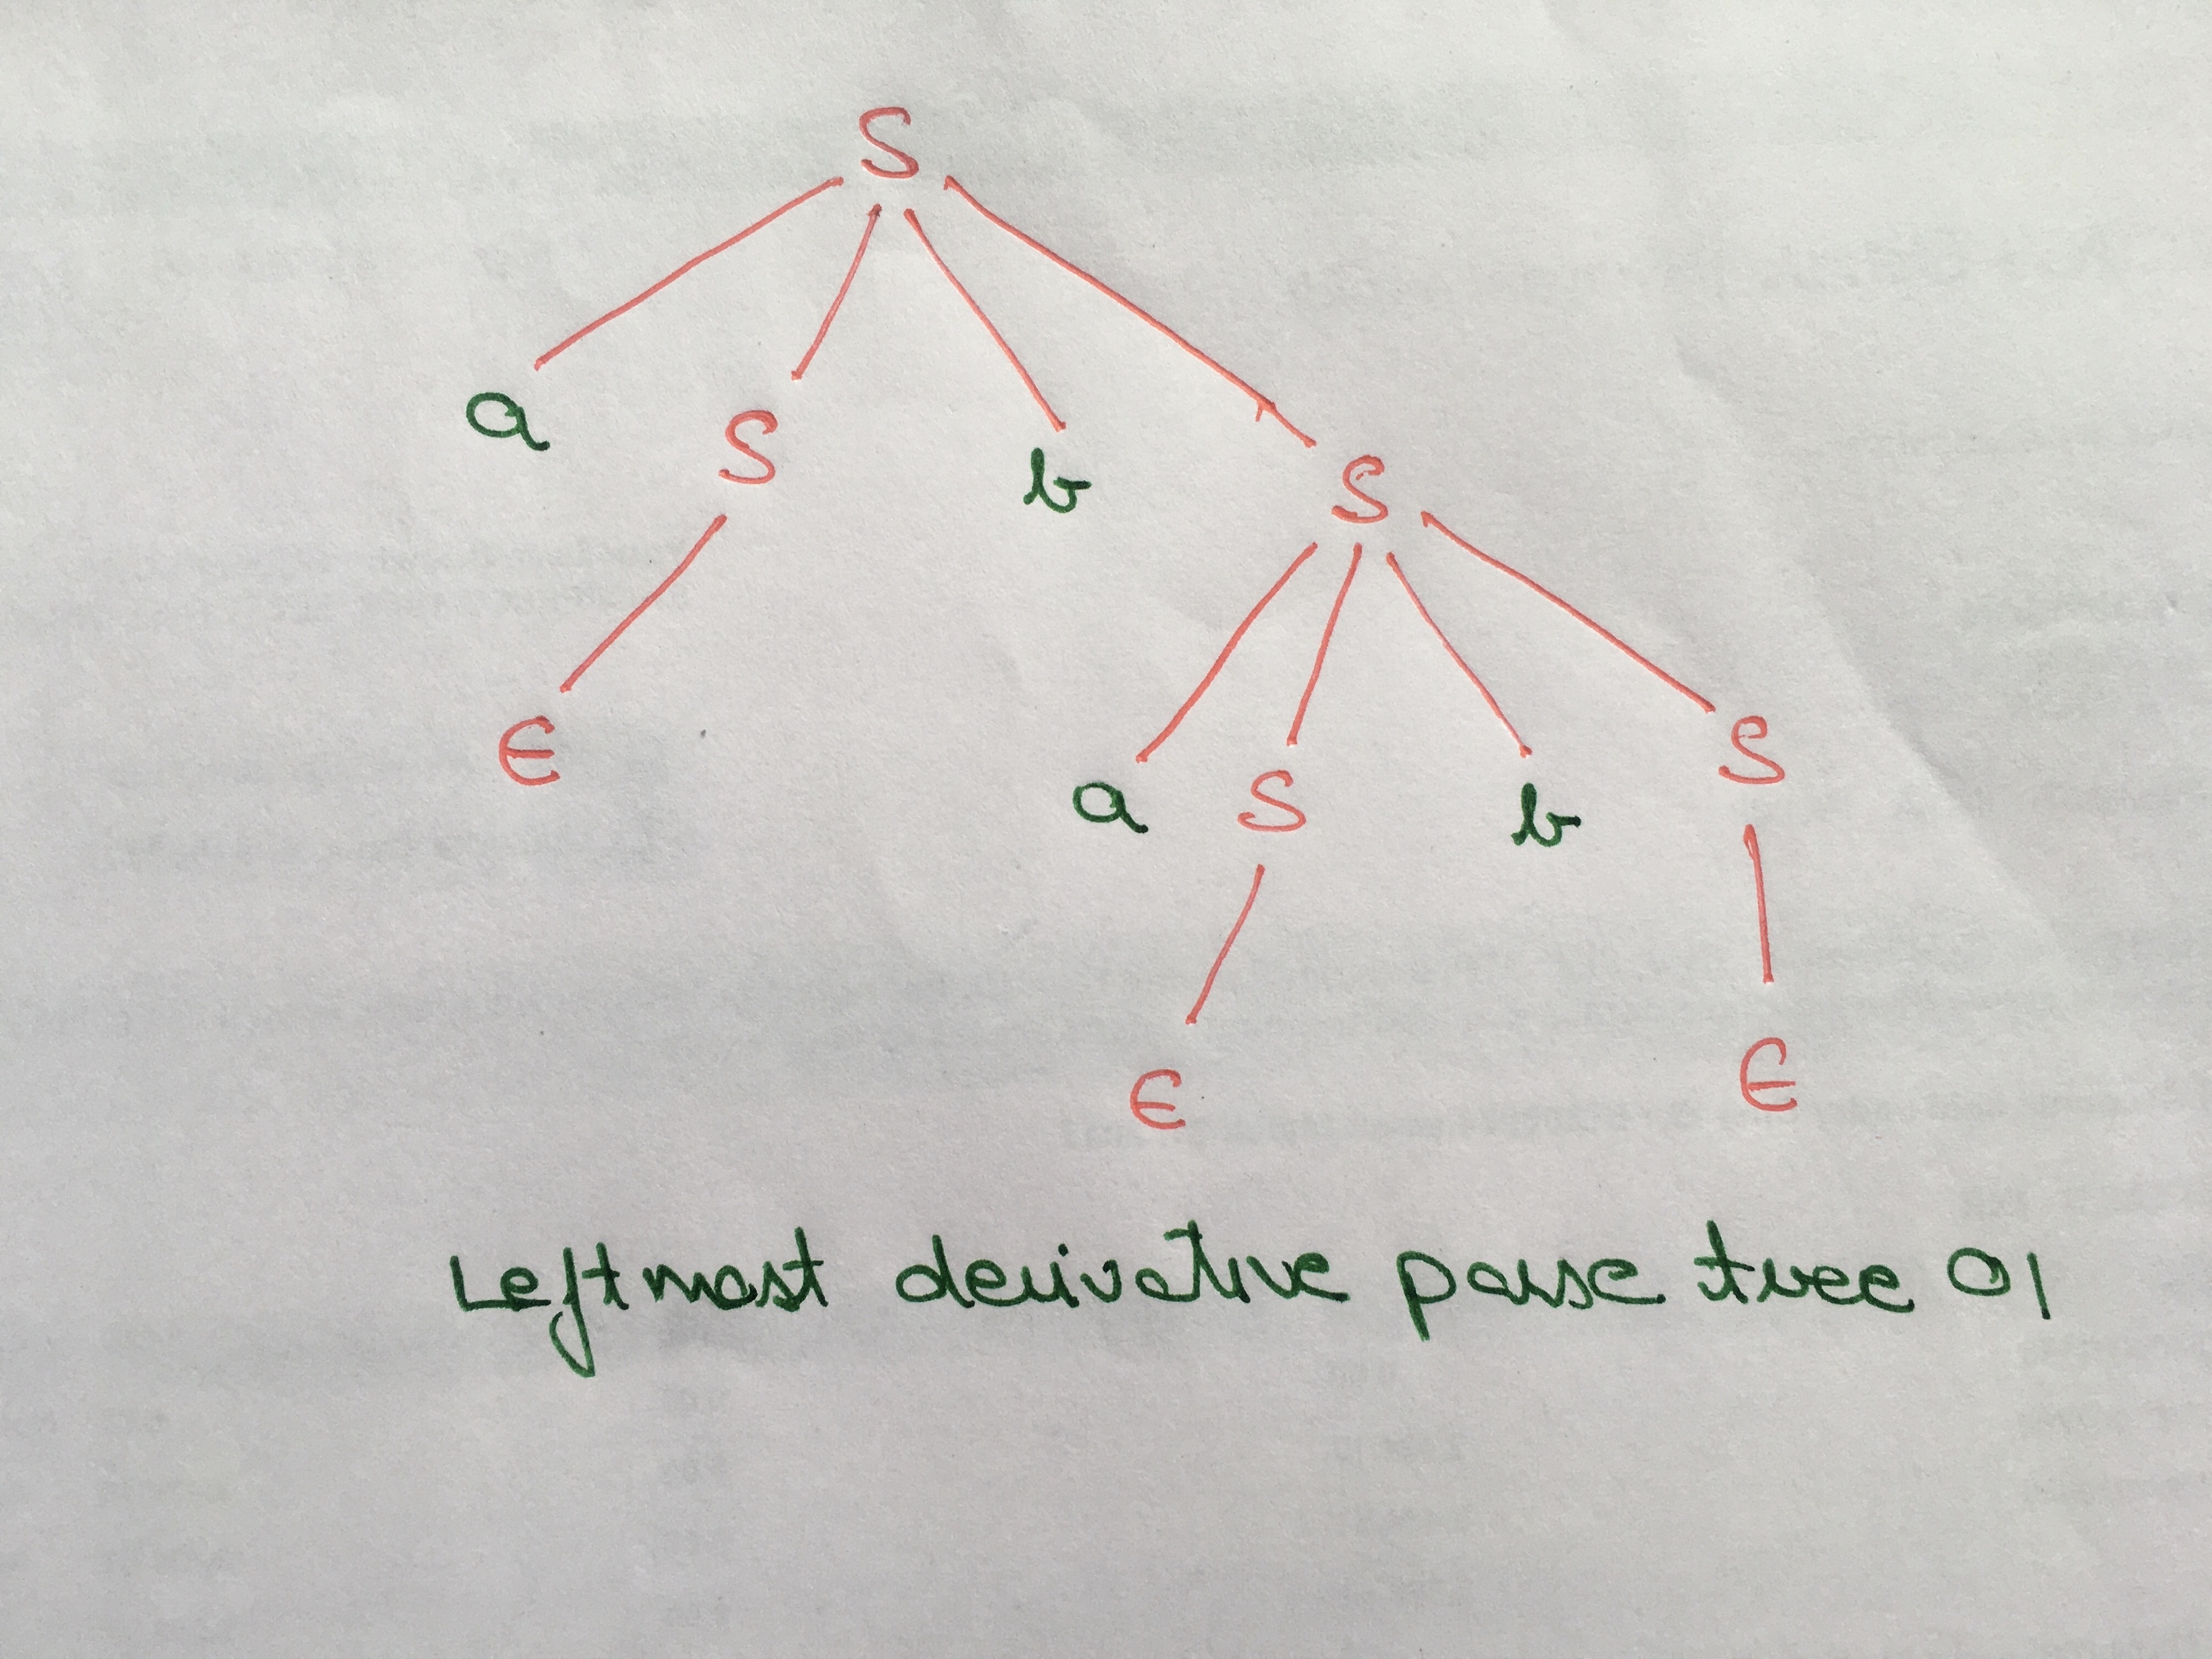 S
a S b S
ϵ a S b S
ϵ ϵ
Leftmost derivative parse tree 01